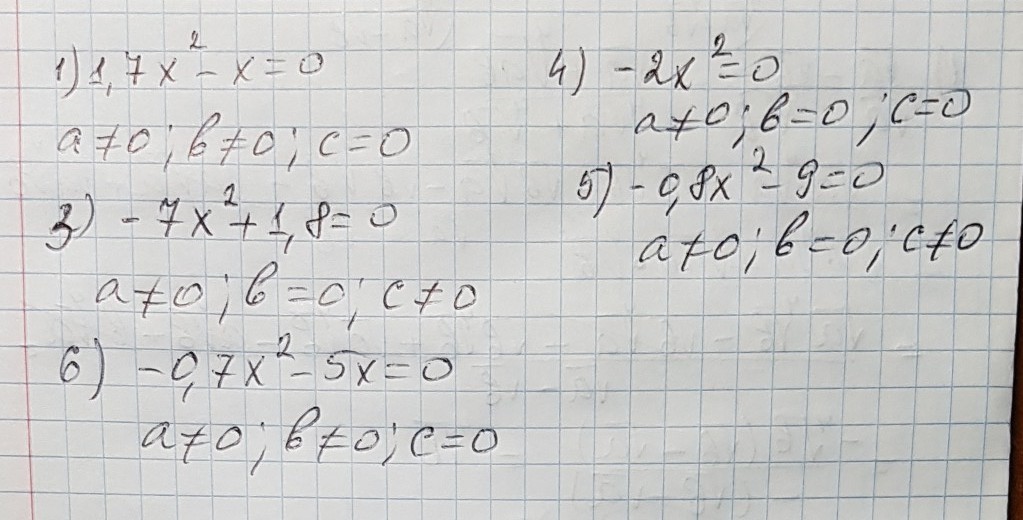 1) 1,7x² - x = 0
a ≠ 0; в ≠ 0; c = 0
3) - 7x² + 1,8 = 0
a ≠ 0; в = 0; c ≠ 0
6) - 0,7x² - 5x = 0
a ≠ 0; в ≠ 0; c = 0
4) - 2x² = 0
a ≠ 0; в = 0; c = 0
5) - 0,8x² - 9 = 0
a ≠ 0; в = 0; c ≠ 0